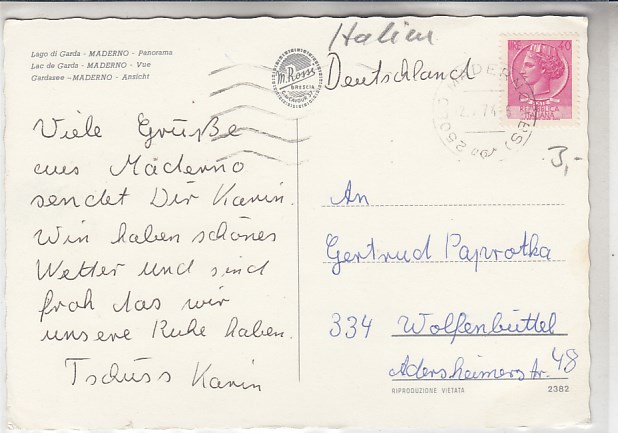 Lago di Garda - MADERNO - Panorama
Lac de Garda - MADERNO - Vue
Gardasee - MADERNO - Ansicht
Viele Grüße
aus Maderno
sendet Dir Karin.
Win haben schönes
Wetter und sind
froh das wir
unsere Ruhe haben.
Tschüss Karin
m. Rossi
BRESCIA
Italien
Deutschland
LIRE 40
REPUBBLICA
ITALIANA
25080 MADERNO (BS)
3,-
An
Gertrud Paprotka
334 Wolfenbüttel
Adersheimerstr. 48
RIPRODUZIONE VIETATA
2382